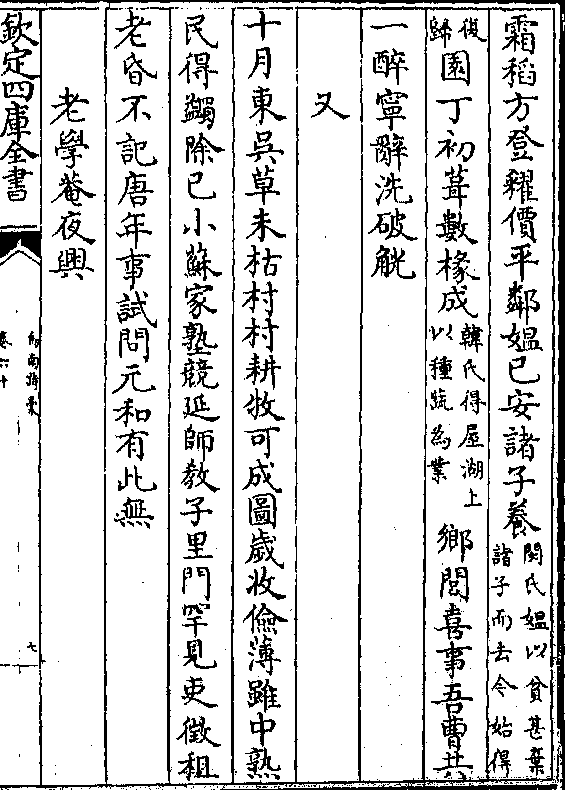 霜稻方登糴價平鄰媪已安諸子養
閔氏媪以貧甚棄
諸子而去今始得
復
歸
園丁初葺數椽成
韓氏得屋湖上
以種蔬為業
鄉閭喜事吾曹共
一醉寧辭洗破觥
又
十月東吳草未枯村村耕牧可成圖歲收儉薄雖中熟
民得蠲除已小蘇家塾競延師教子里門罕見吏徵租
老昏不記唐年事試問元和有此無
老學菴夜興
欽定四庫全書
劍南詩藁
卷六十
七